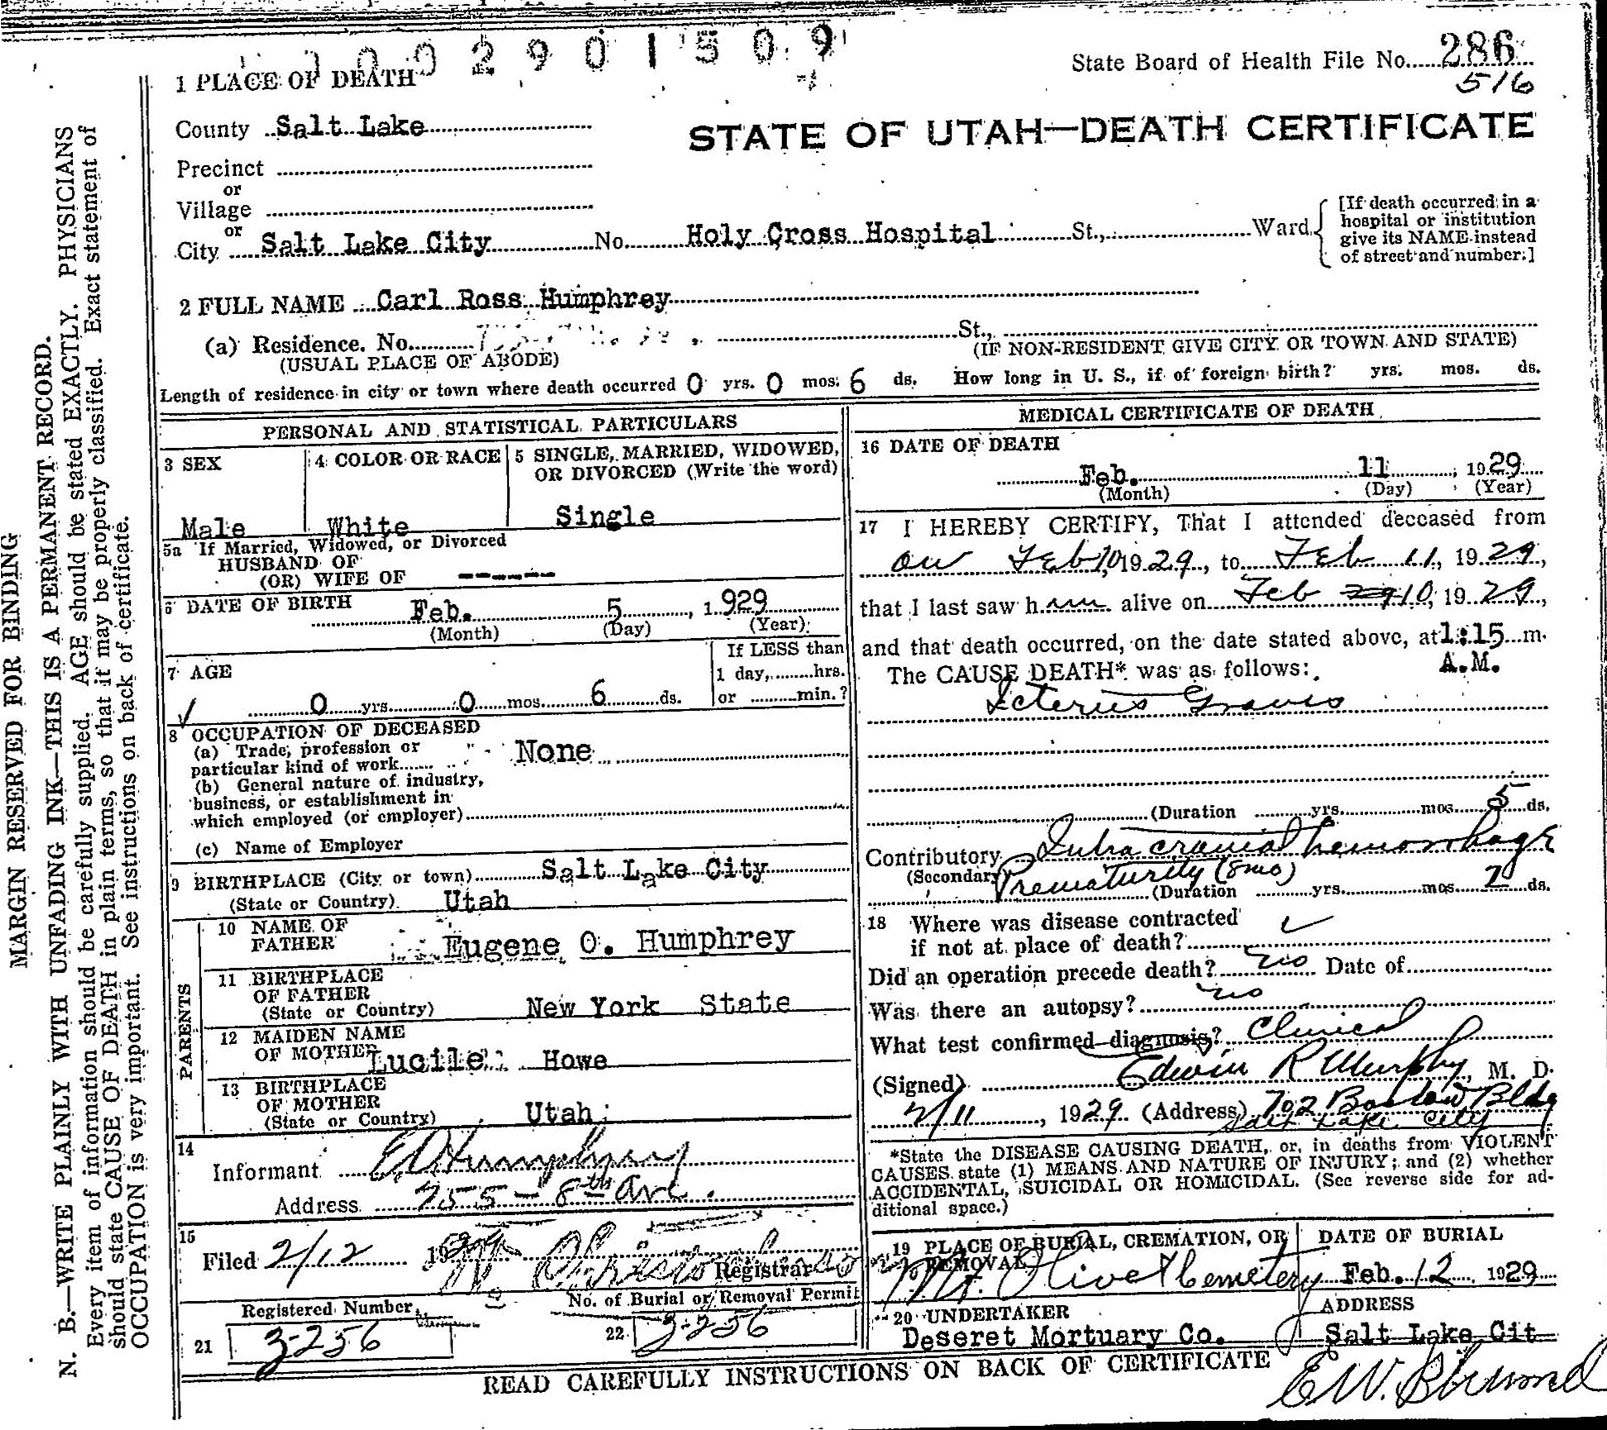 0 0 2 9 0 1 5 0 9
State Board of Health File No. 286
516
1 PLACE OF DEATH
County Salt Lake
STATE OF UTAH—DEATH CERTIFICATE
Precinct
or
Village
or
City Salt Lake City No. Holy Cross Hospital St., Ward
[If death occurred in a
hospital or institution
give its NAME instead
of street and number.]
2 FULL NAME Carl Ross Humphrey
(a) Residence. No. St.,
(USUAL PLACE OF ABODE) (IF NON-RESIDENT GIVE CITY OR TOWN AND STATE)
Length of residence in city or town where death occurred 0 yrs. 0 mos. 6 ds. How long in U. S., if of foreign birth? yrs. mos. ds.
PERSONAL AND STATISTICAL PARTICULARS
3 SEX
Male
4 COLOR OR RACE
White
5 SINGLE, MARRIED, WIDOWED,
OR DIVORCED (Write the word)
Single
5a If Married, Widowed, or Divorced
HUSBAND OF
(OR) WIFE OF ------
6 DATE OF BIRTH Feb. 5, 1929
(Month) (Day) (Year)
7 AGE
0 yrs. 0 mos. 6 ds.
If LESS than
1 day, hrs.
or min.?
8 OCCUPATION OF DECEASED
(a) Trade, profession or
particular kind of work None
(b) General nature of industry,
business, or establishment in
which employed (or employer)
(c) Name of Employer
9 BIRTHPLACE (City or town) Salt Lake City
(State or Country) Utah
PARENTS
10 NAME OF
FATHER Eugene O. Humphrey
11 BIRTHPLACE
OF FATHER
(State or Country) New York State
12 MAIDEN NAME
OF MOTHER Lucile Howe
13 BIRTHPLACE
OF MOTHER
(State or Country) Utah
14
Informant E O Humphrey
Address 755 - 8th Ave.
15
Filed 2/12 1929
Registrar
Registered Number
21 3-256
No. of Burial or Removal Permit
22 3-256
MEDICAL CERTIFICATE OF DEATH
16 DATE OF DEATH
Feb. 11, 1929
(Month) (Day) (Year)
17 I HEREBY CERTIFY, That I attended deceased from
on Feb 10, 1929, to Feb 11, 1929,
that I last saw him alive on Feb 10, 1929,
and that death occurred, on the date stated above, at 1:15 m.
A.M.
The CAUSE DEATH* was as follows:
Icterus Gravis
(Duration yrs. mos. 5 ds.
Contributory Intra cranial hemorrhage
(Secondary) Prematurity (8mo)
(Duration yrs. mos. 7 ds.
18 Where was disease contracted
if not at place of death?
Did an operation precede death? no Date of
Was there an autopsy? no
What test confirmed diagnosis? Clinical
(Signed) Edwin R Murphy, M. D.
2/11, 1929 (Address) 702 Boston Bldg
Salt Lake City
*State the DISEASE CAUSING DEATH, or, in deaths from VIOLENT
CAUSES state (1) MEANS AND NATURE OF INJURY; and (2) whether
ACCIDENTAL, SUICIDAL OR HOMICIDAL. (See reverse side for ad-
ditional space.)
19 PLACE OF BURIAL, CREMATION, OR
REMOVAL
Mt. Olivet Cemetery
DATE OF BURIAL
Feb. 12 1929
20 UNDERTAKER
Deseret Mortuary Co.
ADDRESS
Salt Lake Cit
READ CAREFULLY INSTRUCTIONS ON BACK OF CERTIFICATE
MARGIN RESERVED FOR BINDING
N. B.—WRITE PLAINLY WITH UNFADING INK—THIS IS A PERMANENT RECORD.
Every item of information should be carefully supplied. AGE should be stated EXACTLY. PHYSICIANS
should state CAUSE OF DEATH in plain terms, so that it may be properly classified. Exact statement of
OCCUPATION is very important. See instructions on back of certificate.